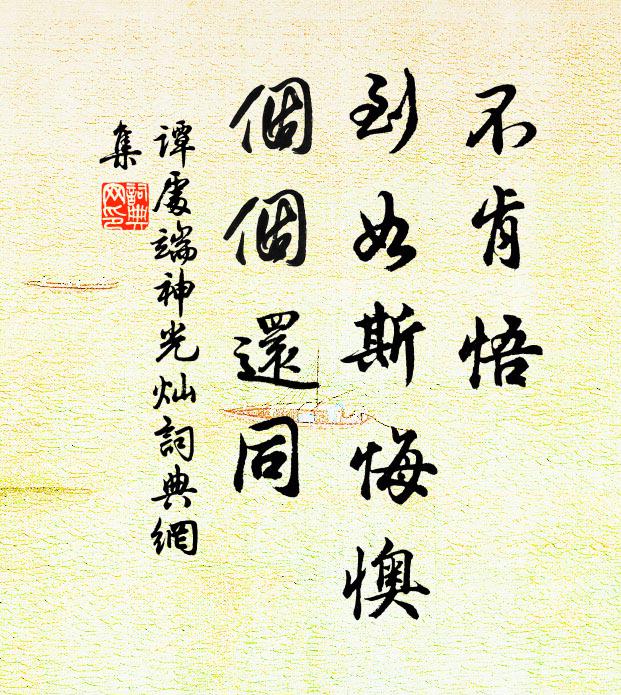 不肯悟
到如斯悔懊
個個還同
谭處端神光灿詞典網
集
詞典
网印